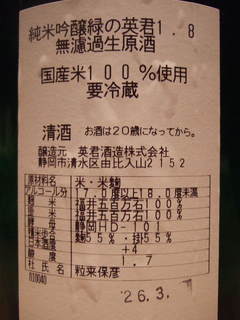 純米吟醸緑の英君1.8
無濾過生原酒
国産米100%使用
要冷蔵
清酒 お酒は20歳になってから。
醸造元 英君酒造株式会社
静岡市清水区由比入山2152
原材料名 米・米麹
アルコール分 17.0度以上18.0度未満
麹米 福井五百万石100%
掛米 福井五百万石100%
酵母 静岡HD-101
精米歩合 麹55%・掛55%
日本酒度 +4
酸度 1.7
杜氏名 粒来保彦
010040
26.3.